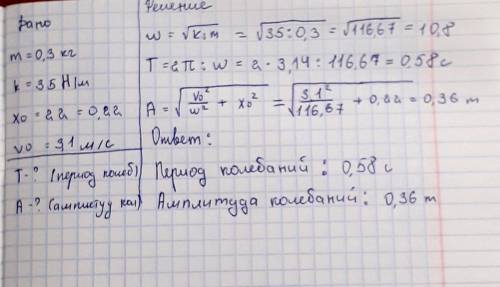 Дано
m = 0,3 кг
k = 35 Н/м
x0 = 22 = 0,22
v0 = 31 м/с
T - ? (период колеб)
A - ? (амплитуд кол)
Решение
w = √k:m = √35:0,3 = √116,67 = 10,8
T = 2π : w = 2 · 3,14 : 116,67 = 0,58 с
A = √v0²/w² + x0² = √3.1²/116,67 + 0,22 = 0,36 m
Ответ:
Период колебаний : 0,58 с
Амплитуда колебаний : 0,36 m